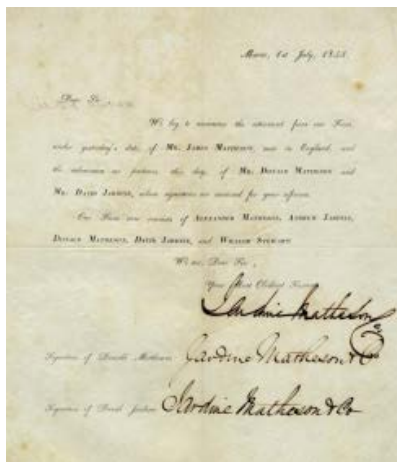 Macao, 1st July,
Dear Sir,
We beg to announce the retirement from our Firm,
under yesterday's date, of MR. JAMES MATHESON, now in England, and
the admission as partners this day, of MR. DONALD MATHESON and
MR. DAVID JARDINE, whose signatures are annexed for your
Our Firm now consists of ALEXANDER MATHESON, ANDREW JARDINE,
DONALD MATHESON, DAVID JARDINE, and WILLIAM STEWART
We are, Dear Sir,
Your Most Obedient
Jardine Matheson & Co
Signature of Donald Matheson Jardine Matheson & Co
Signature of David Jardine Jardine Matheson & Co